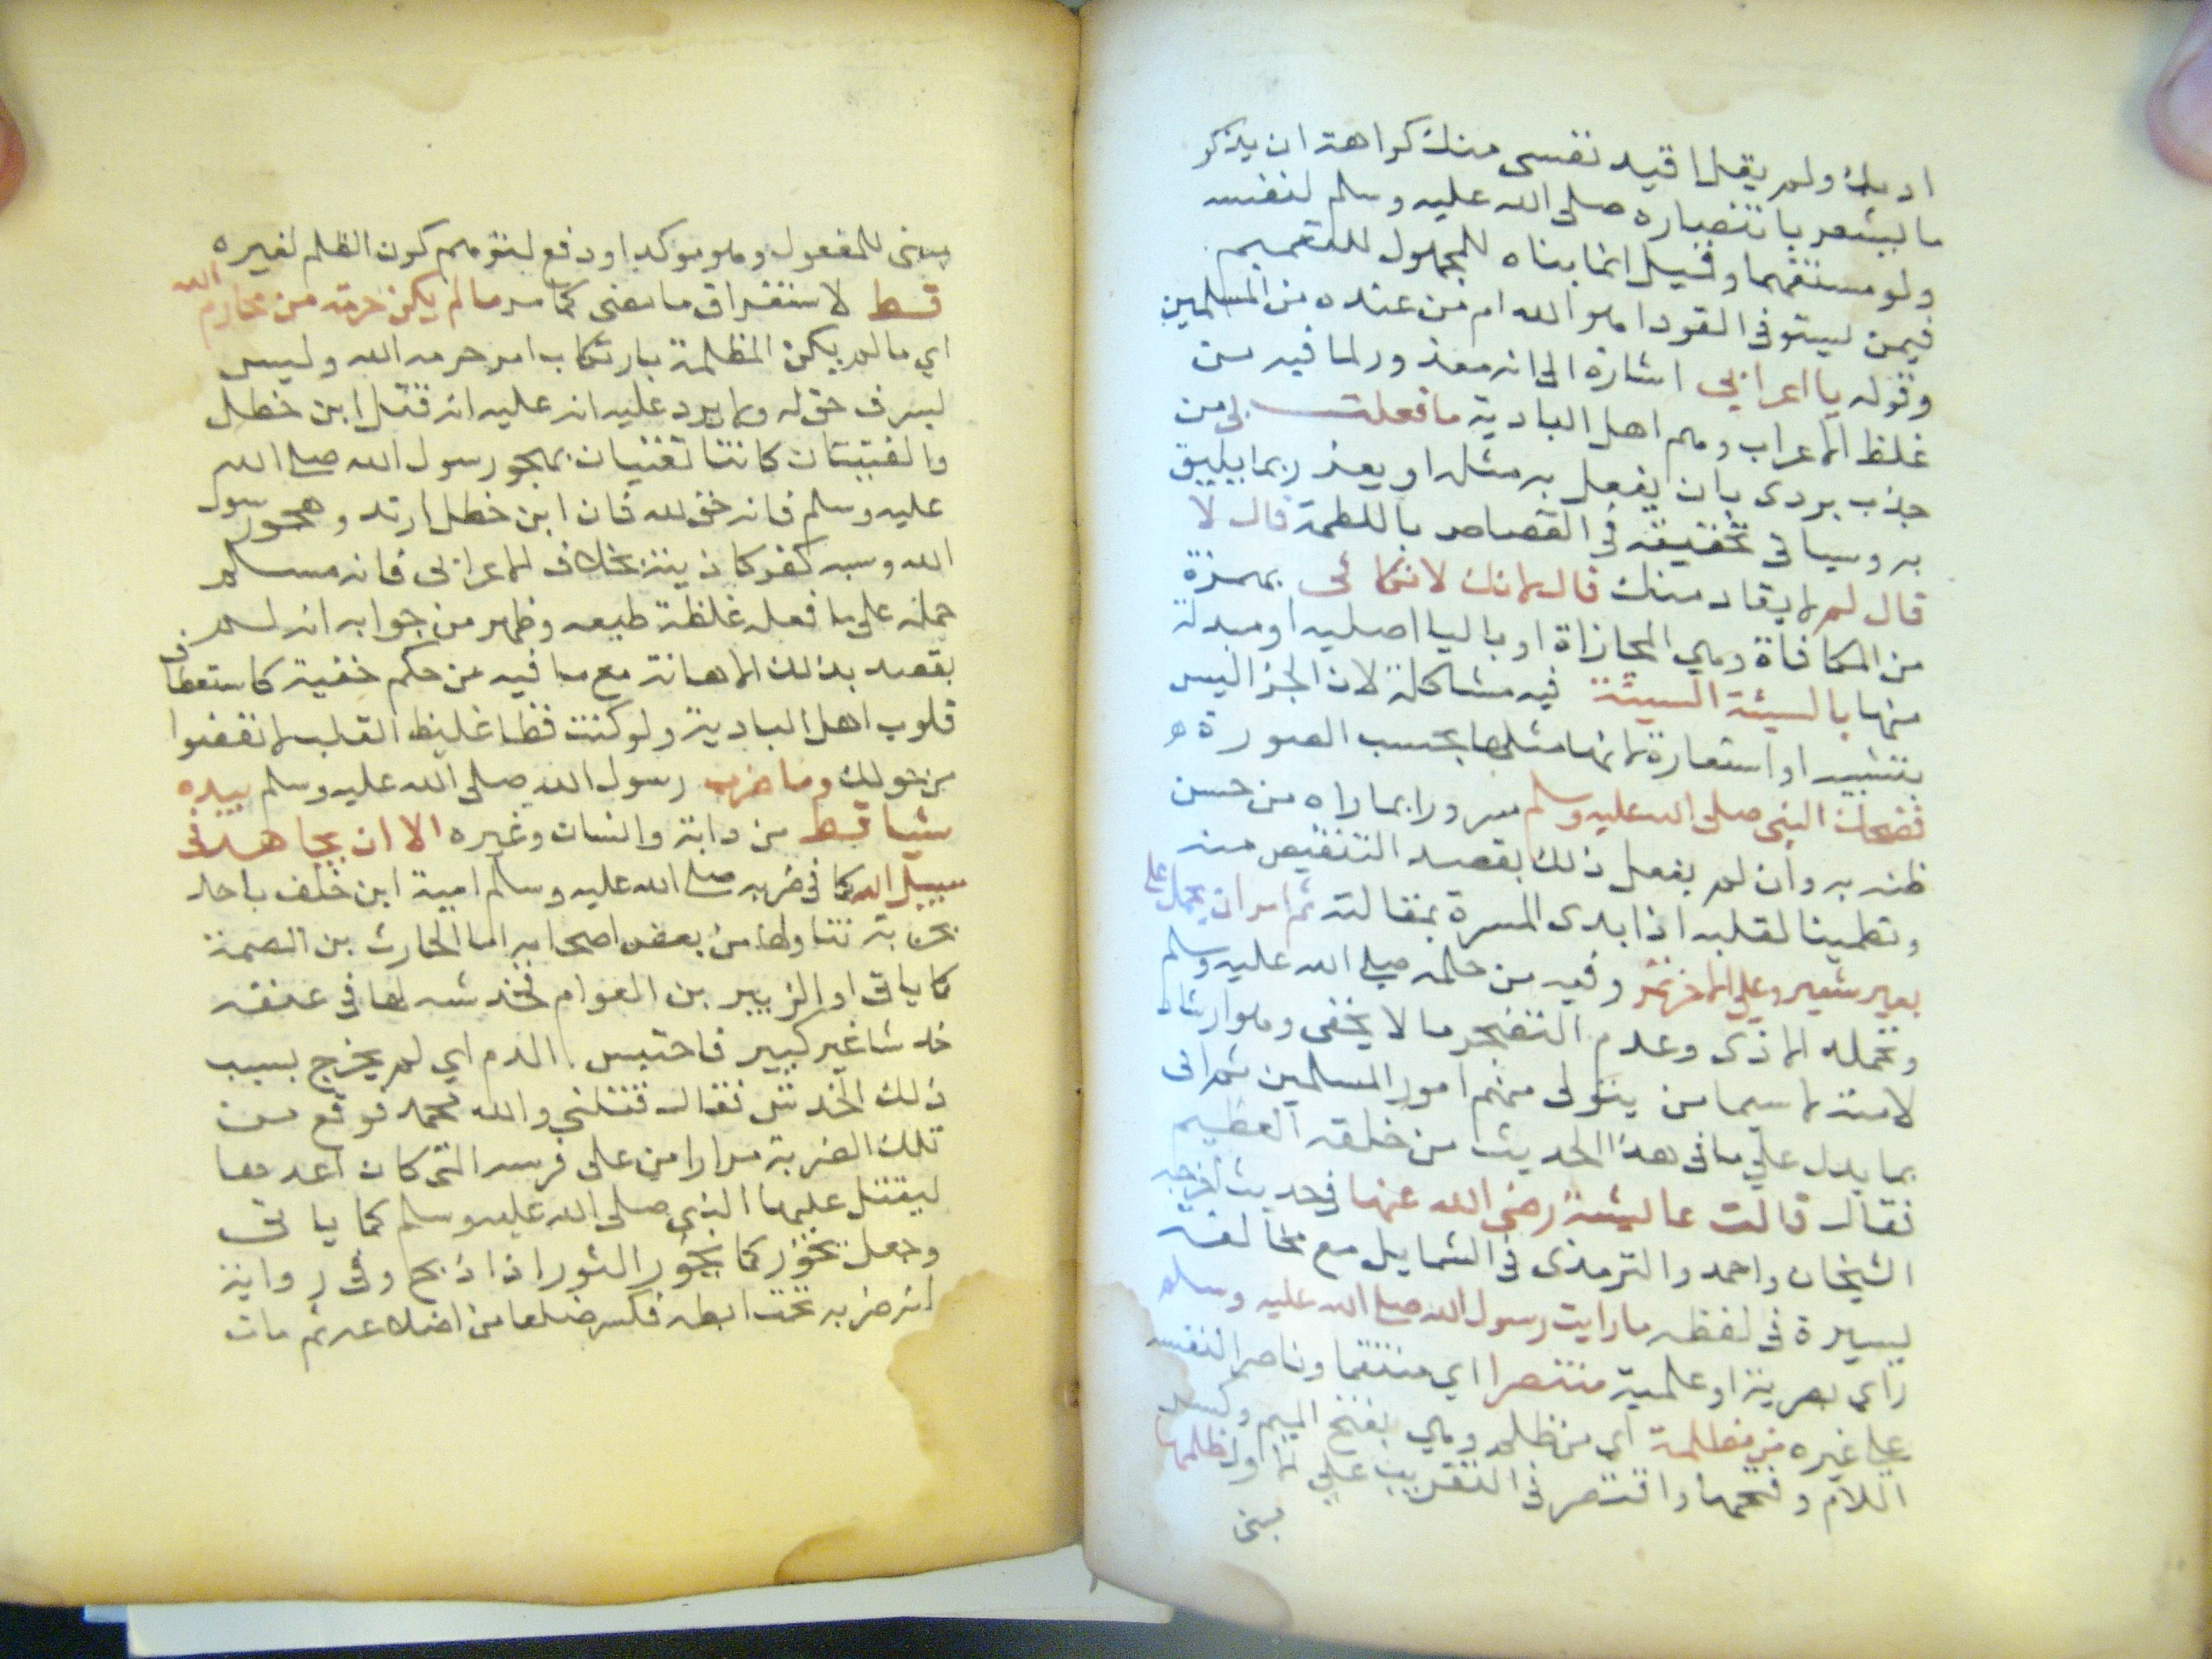 ادبك ولم يقل اقيد نفسى منك كراهة ان يذكر
ما يشعر بانتصاره صلى الله عليه وسلم لنفسه
ولو مستفهما وقيل انما بناه للمجهول للتعميم
فيمن يستوفى القود اهو الله ام من عنده من المسلمين
وقوله يا اعرابى اشارة الى انه معذور لما فيه من
غلظ الاعراب وهم اهل البادية ما فعلت بى من
جذب بردى بان يفعل به مثله او يعذر بما يليق
به وسياتى تحقيقه فى القصاص باللطمة قال لا
قال لم لا يقاد منك قال لانك لا تكافئ بهمزة
من المكافاة وهى المجازاة او بالياء اصلية او مبدلة
منها بالسيئة السيئة فيه مشاكلة لان الجزا ليس
بتشبيه او استعارة لانها مثلها بحسب الصورة
فضحك النبى صلى الله عليه وسلم سرورا بما راه من حسن
ظنه به وان لم يفعل ذلك بقصد التنقيص منه
وتطمينا لقلبه اذا بدى المسرة بمقالته ثم امر ان يحمل له على
بعير شعير وعلى الاخر تمر وفيه من حلمه صلى الله عليه وسلم
وتحمله الاذى وعدم التضجر ما لا يخفى وهو ارشاد
لامته لا سيما من يتولى منهم امور المسلمين ثم اتى
بما يدل على ما فى هذا الحديث من خلقه العظيم
فقال قالت عائشة رضى الله عنها فى حديث اخرجه
الشيخان واحمد والترمذى فى الشمايل مع مخالفة
يسيرة فى لفظه ما رايت رسول الله صلى الله عليه وسلم
راى بصرية او علمية منتصرا اى منتقما وناصرا لنفسه
على غيره من مظلمة اى من ظلم وهى بفتح الميم وكسر
اللام وفتحها واقتصر فى التقريب على الاول ظلمها
مبنى
مبنى للمفعول وهو موكد او دفع لتوهم كون الظلم لغيره
قط لاستغراق ما مضى كما مر ما لم يكن حرمة من محارم الله
اي ما لم يكن المظلمة بارتكاب امر حرمه الله وليس
لصرف حق له ولا يرد عليه انه عليه انه قتل ابن خطل
والقينتان كانتا تغنيان بهجو رسول الله صلى الله
عليه وسلم فانه حق لله فان ابن خطل ارتد وهجو رسول
الله وسبه كفر كاذيته بخلاف الاعرابى فانه مسلم
حمله على ما فعله غلظة طبعه وظهر من جوابه انه لم
يقصد بذلك الاهانة مع ما فيه من حكم خفية كاستعطاف
قلوب اهل البادية ولو كنت فظا غليظ القلب لانفضوا
من حولك وما ضرب رسول الله صلى الله عليه وسلم بيده
شيا قط من دابة وانسان وغيره الا ان يجاهد فى
سبيل الله كما فى ضربه صلى الله عليه وسلم امية ابن خلف باحد
بحربة تناولها من بعض اصحابه اما الحارث بن الصمة
كما ياتى او الزبير بن العوام فخدشه بها فى عنقه
خدشا غير كبير فاحتبس الدم اي لم يخرج بسبب
ذلك الخدش فقال قتلنى والله محمد فوقع من
تلك الضربة مرارا من على فرسه التى كان اعدها
ليقتل عليها النبى صلى الله عليه وسلم كما ياتى
وجعل يخور كما يخور الثور اذا ذبح وفى رواية
انه ضربه تحت ابطه فكسر ضلعا من اضلاعه ثم مات